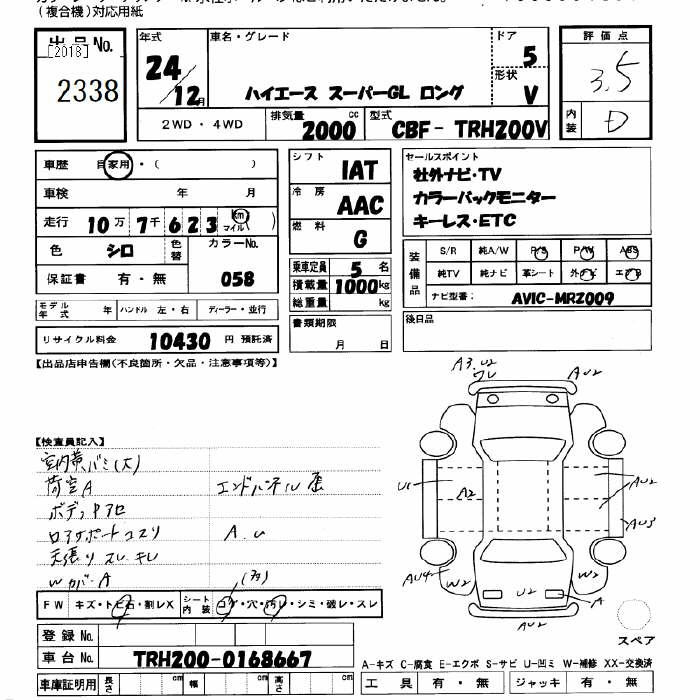 (複合機)対応用紙
出品No.
[2018]
2338
年式
24
12月
車名・グレード
ハイエース スーパーGL ロング
ドア
5
形状
V
2WD・4WD
排気量
2000 cc
型式
CBF-TRH200V
評価点
3.5
内装
D
車歴 自家用・( )
車検 年 月
走行 10万 7千 6 2 3 km マイル
色 シロ 色替 カラーNo.
保証書 有・無 058
モデル年式 年 ハンドル 左・右 ディーラー・並行
リサイクル料金 10430 円 預託済
シフト IAT
冷房 AAC
燃料 G
乗車定員 5 名
積載量 1000 kg
総重量 kg
書類期限
月 日
セールスポイント
社外ナビ・TV
カラーバックモニター
キーレス・ETC
装備品
S/R 純A/W P/S P/W ABS
純TV 純ナビ 革シート 外ナビ エアB
ナビ型番: AVIC-MRZ009
後日品
【出品店申告欄(不良箇所・欠品・注意事項等)】
【検査員記入】
室内黄バミ(大)
荷室A エンドパネル
ボデー
ロアサポートコスリ A.U
天張り スレ キレ
Wガバ A
FW キズ・トビ石・割レX
シート内装 コゲ・穴・汚レ・シミ・破レ・スレ
(多)
登録No.
車台No. TRH200-0168667
車庫証明用 長さ cm 幅 cm 高さ cm
A3.U2
AU2
U1
A2
AU2
AU3
AU4
W2
W2
U2
A
スペア
A-キズ C-腐食 E-エクボ S-サビ U-凹ミ W-補修 XX-交換済
工具 有・無 ジャッキ 有・無